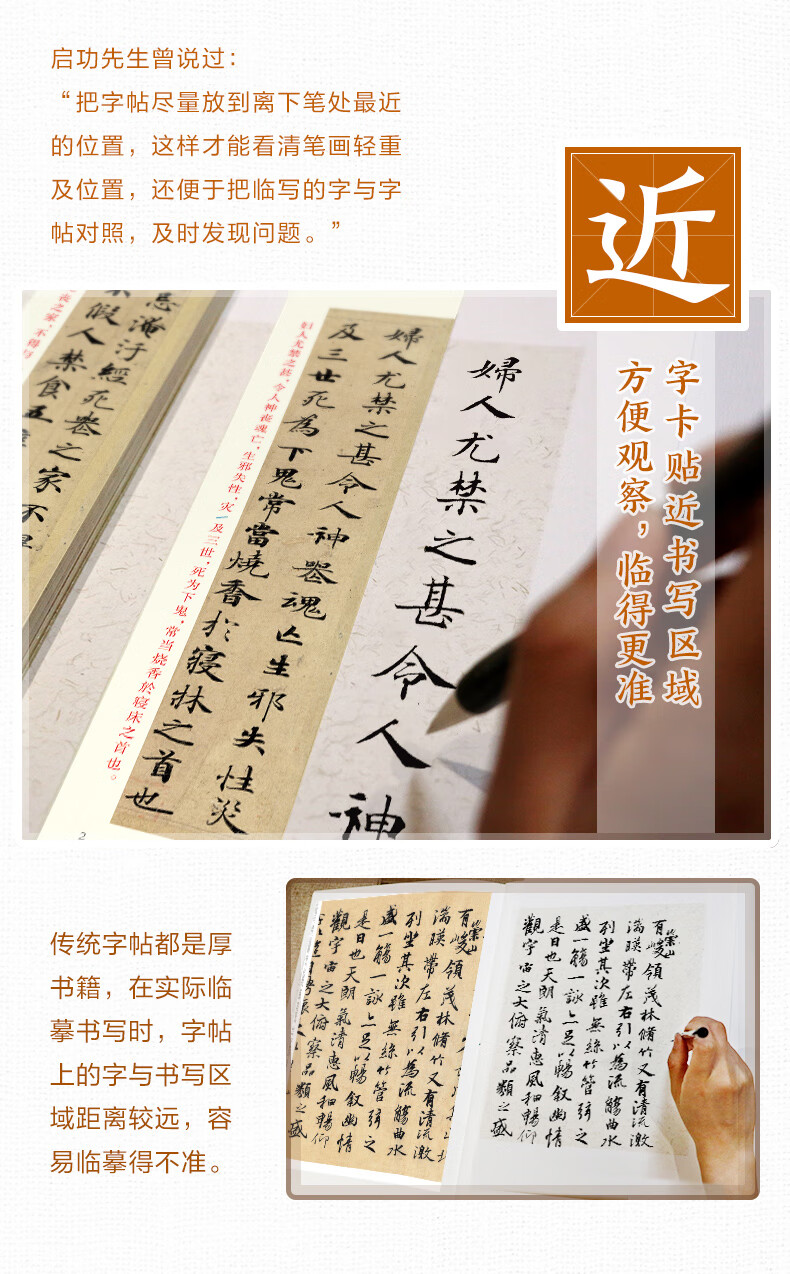 启功先生曾说过：
“把字帖尽量放到离下笔处最近
的位置，这样才能看清笔画轻重
及位置，还便于把临写的字与字
帖对照，及时发现问题。”
近
字卡贴近书写区域
方便观察，临得更准
婦人尤禁之甚令人神
婦人尤禁之甚令人神喪魂亡生邪失性災
及三世死為下鬼常當燒香於寝牀之首也
妇人尤禁之甚，令人神丧魂亡，生邪失性，灾
及三世，死为下鬼，常当烧香於寝床之首也。
丧之家，不得与
忌淹汙經死喪之家不
假人禁食五
2
传统字帖都是厚
书籍，在实际临
摹书写时，字帖
上的字与书写区
域距离较远，容
易临摹得不准。
有崇山峻領茂林脩竹又有清流激
湍暎帶左右引以為流觴曲水
列坐其次雖無絲竹管弦之
盛一觴一詠亦足以暢敘幽情
是日也天朗氣清惠風和暢仰
觀宇宙之大俯察品類之盛
有崇山峻領茂林脩竹又有清流激
湍暎帶左右引以為流觴曲水
列坐其次雖無絲竹管弦之
盛一觴一詠亦足以暢敘幽情
是日也天朗氣清惠風和暢仰
觀宇宙之大俯察品類之盛